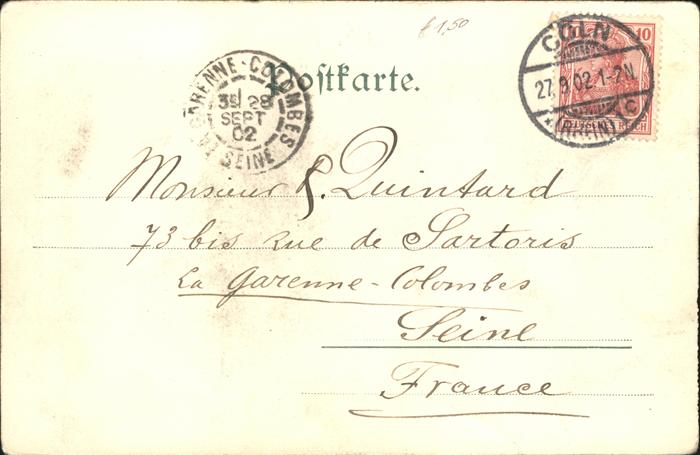 £ 1,50
Postkarte.
CÖLN
27.9.02.1-2N.
*(RHEIN)1c
10
REICH
GARENNE-COLOMBES
3E 28
SEPT
02
SEINE
Monsieur Quintard
73 bis rue de Sartoris
La Garenne-Colombes
Seine
France